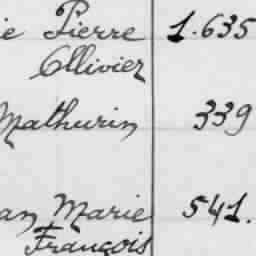 ie Pierre 1.635
Ollivier
Mathurin 339
an Marie 541.
François